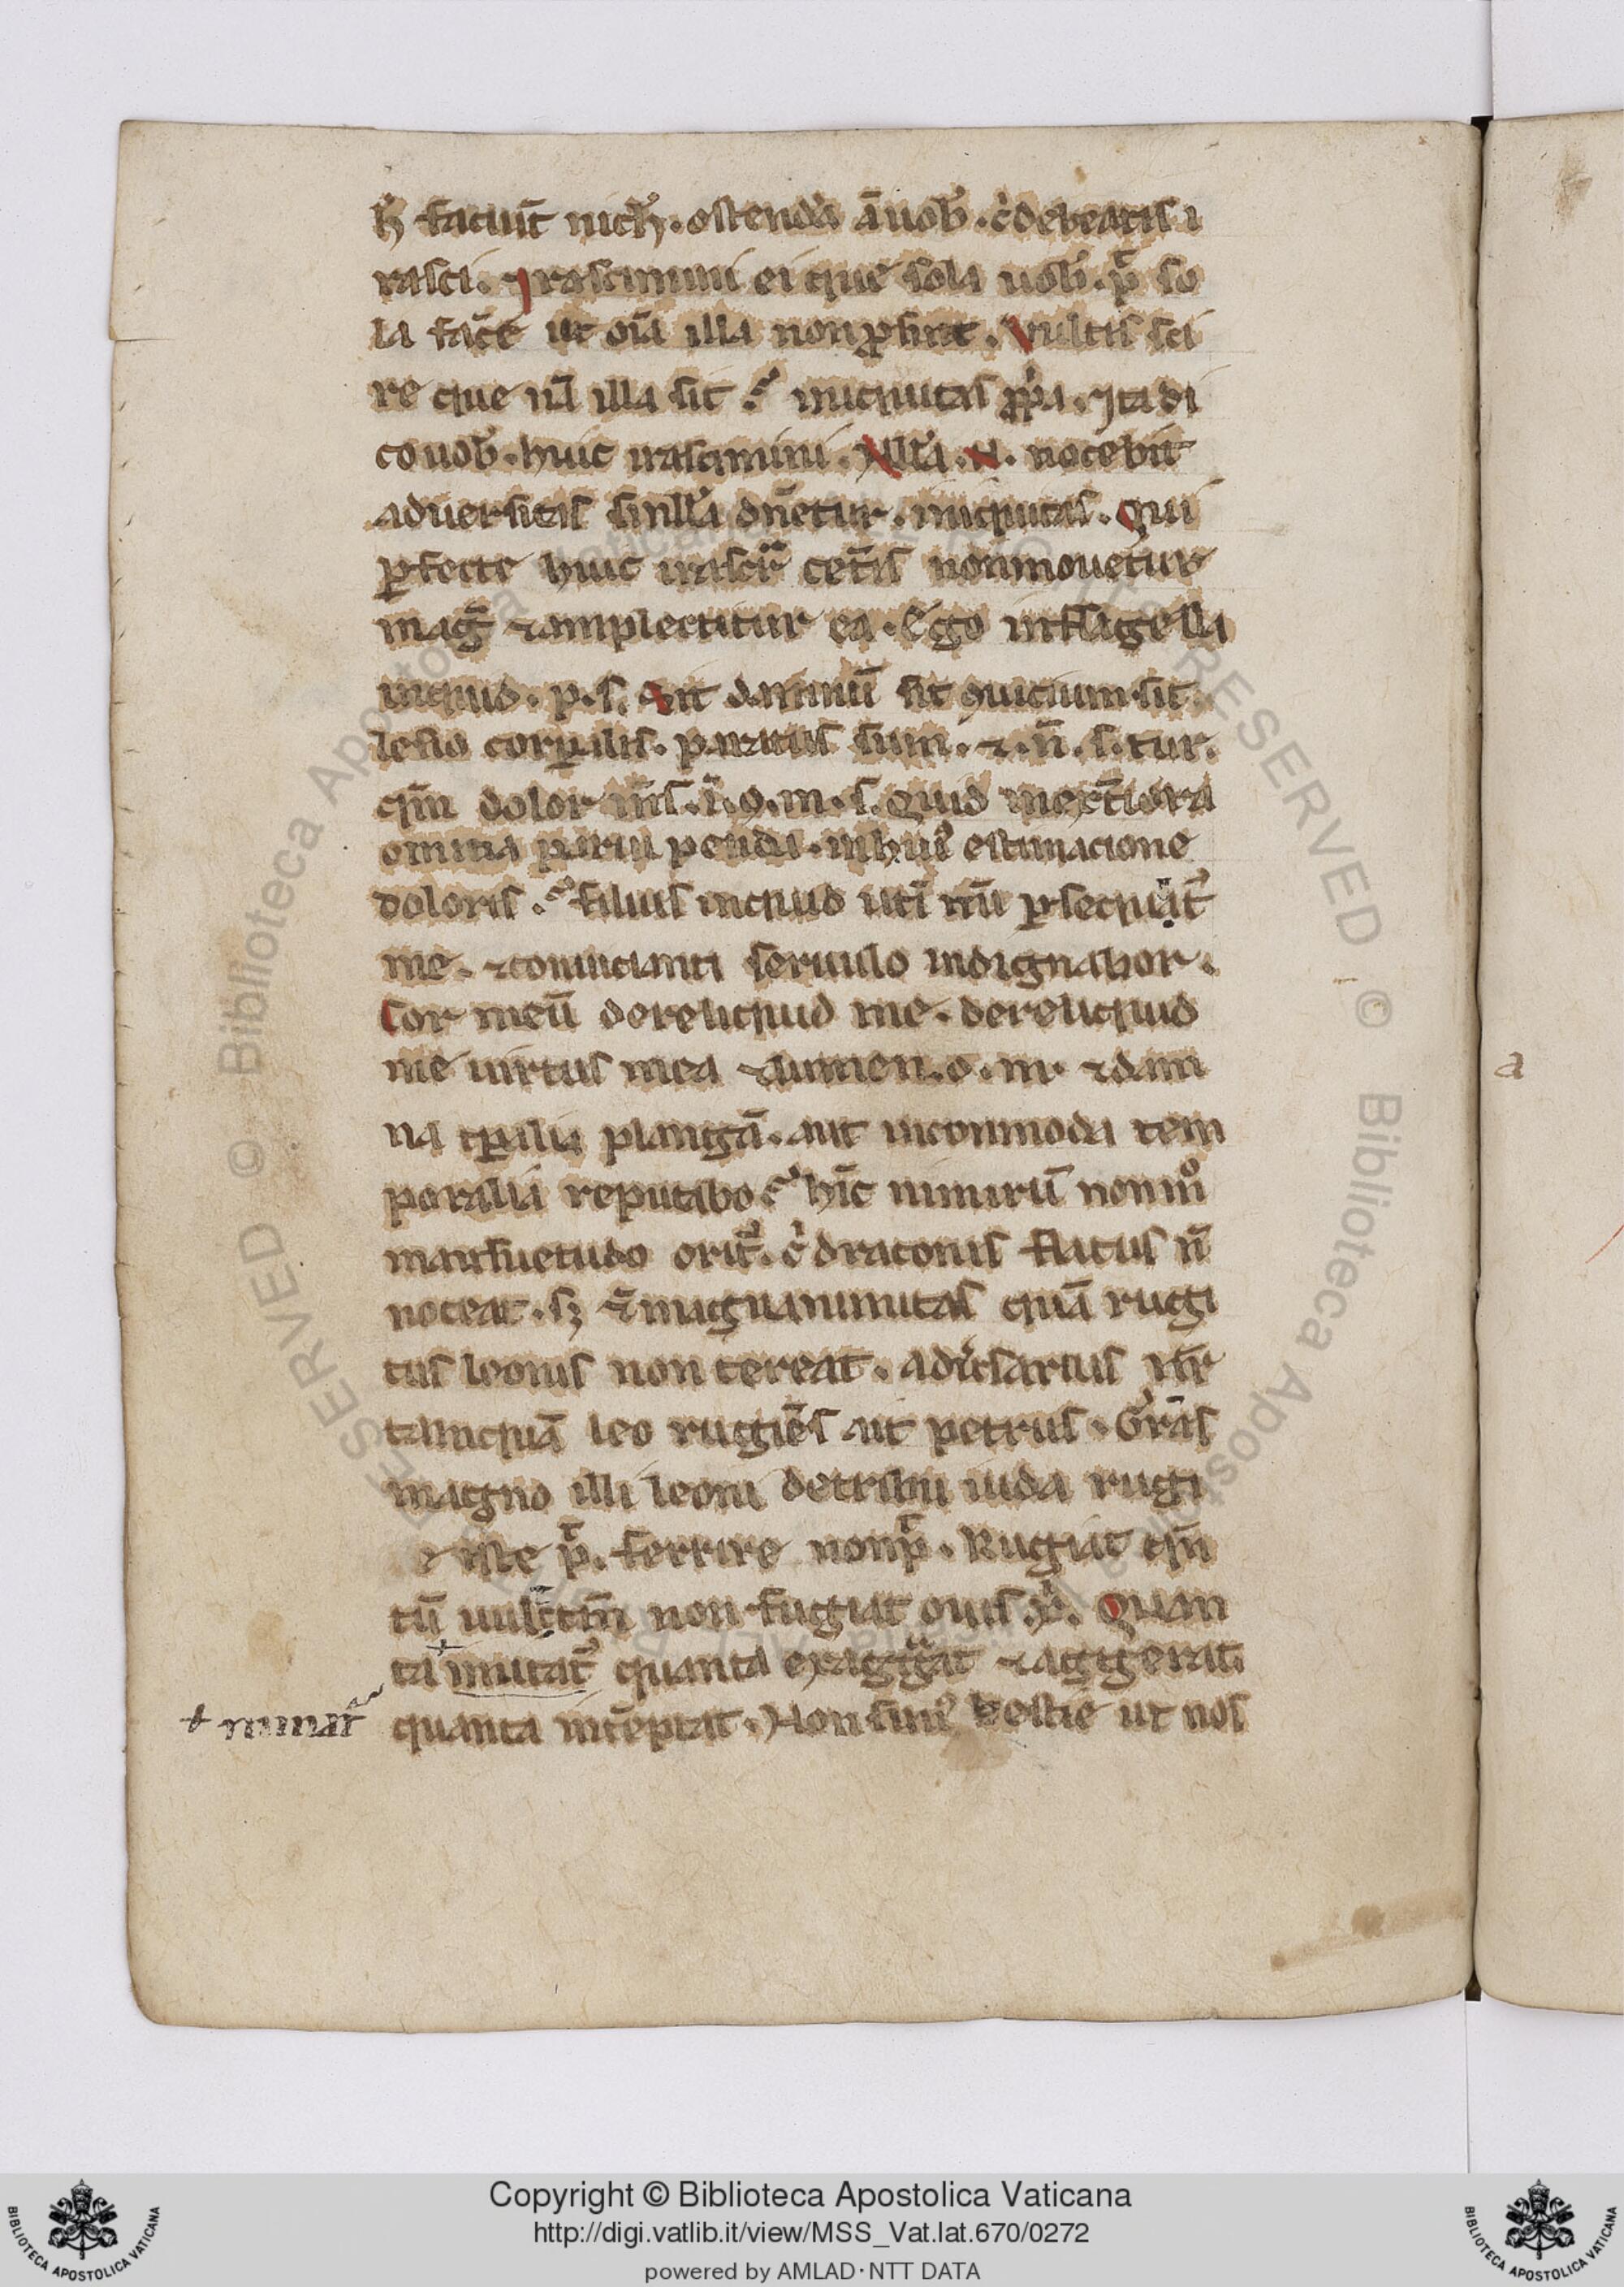 h̄ faciūt nich̄. ostendā aūuob̉. c̉ debeatis i
rasci. Irascimini ei que sola uob̉. p̄ so
la fac̄e ut oīa illa non ꝓsint. Vultis sci
re que nā illa sit. iniquitas ꝓp̉a. Ita di
co uob̉. huic irascimini. Nll̉a. N. nocebit
aduersitas si nll̉a dn̄etur. iniquitas. Qui
ꝑfecte huic irascit᷑ cet̄is non mouetur
maḡ ⁊ amplectitur ea. Ego in flagella
inquid. p. s. Sit dampnū sit ꝯuicium sit
lesio corꝑalis. paratus sum. ⁊. n̄. s. tur.
qm̄ dolor m̄s. ī. ꝯ. m. s. Quid in ext̄iora
omnia parui pendā. in hui᷒ estimacione
doloris. filius inquid ut̄i m̄ū ꝑsequit᷑
me. ⁊ conuicianti seruulo indignabor.
Cor meū dereliquid me. dereliquid
me uirtus mea ⁊ lumen. o. m. ⁊ dam
na tꝑalia plangā. aut incommoda tem
poralia reputabo. hīc nimirū non mº
mansuetudo orit᷑. c̉ draconis flatus n̄
noceat. sꝫ ⁊ magnanimitas quā rugi
tus leonis non tereat. aduersarius nr̄
tamquā leo rugiēs ait petrus. Gr̄as
magno illi leoni de tribu iuda rugi
e iste p̄. ferrire non p̄. Rugiat qm̄
tū uult tm̄ non fugiat ouis. Quan
ta mutat᷑ quanta exagg̉at ⁊ aggerat
+ minat᷑ quanta int̄eptat. Non sim᷒ bestie ut nos
a
Copyright © Biblioteca Apostolica Vaticana
http://digi.vatlib.it/view/MSS_Vat.lat.670/0272
powered by AMLAD·NTT DATA
BIBLIOTECA APOSTOLICA VATICANA
BIBLIOTECA APOSTOLICA VATICANA